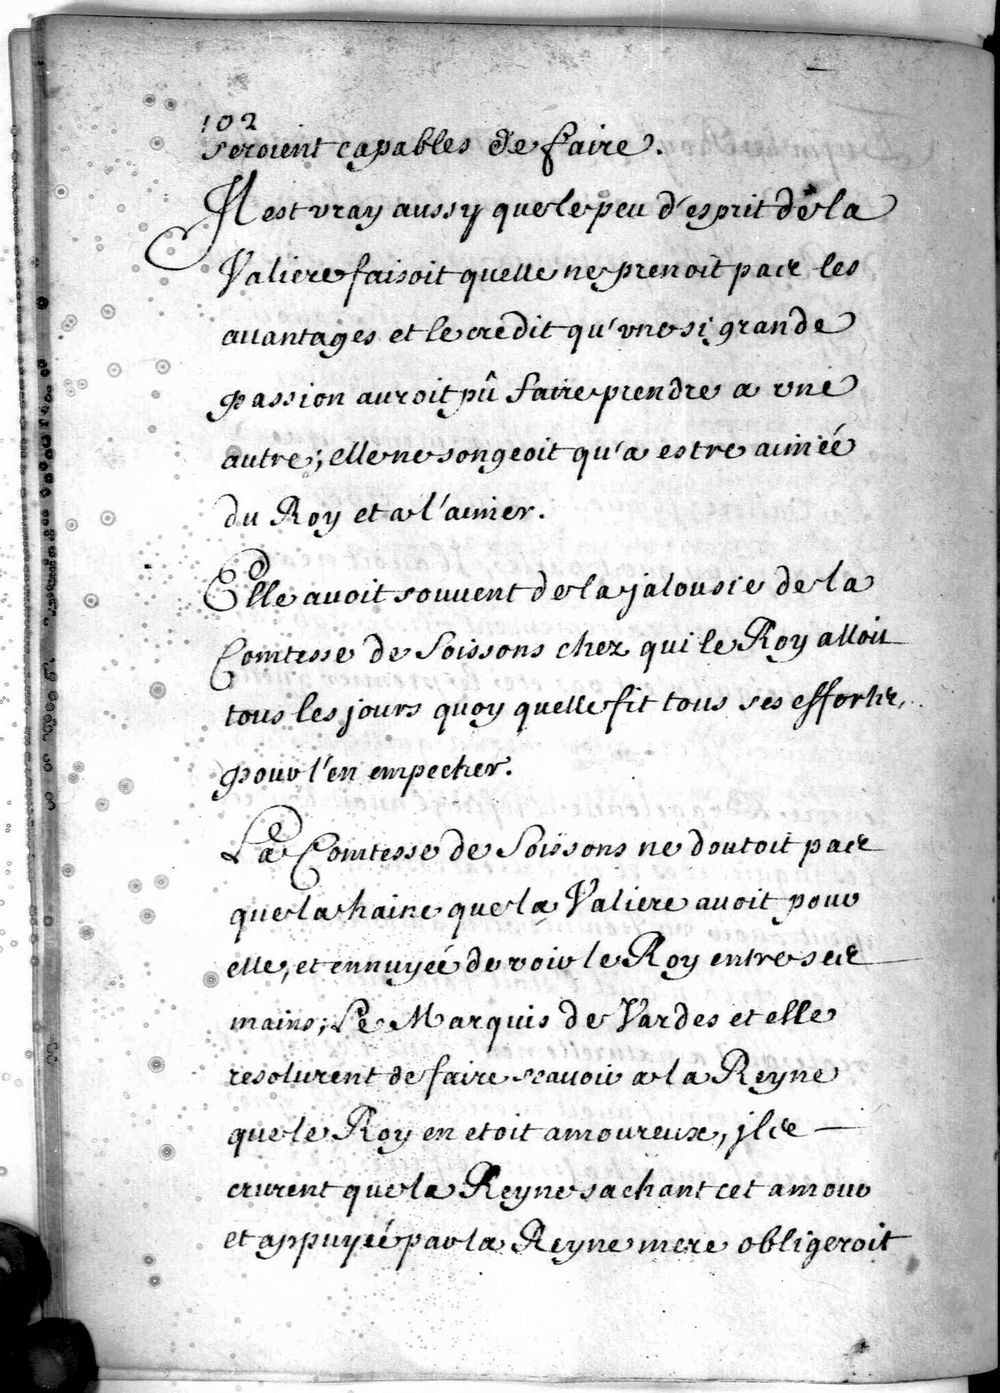 102
seroient capables de faire.
Il est vray aussy que le peu d'esprit de la
Valiere faisoit quelle ne prenoit pas les
auantages et le credit qu'vne si grande
passion auroit pû faire prendre a vne
autre; elle ne songeoit qu'a estre aimée
du Roy et a l'aimer.
Elle auoit souuent de la jalousie de la
Comtesse de Soissons chez qui le Roy alloit
tous les jours quoy quelle fit tous ses efforts,
pour l'en empecher.
La Comtesse de Soissons ne doutoit pas
que la haine que la Valiere auoit pour
elle, et ennuyée de voir le Roy entre ses
mains; Le Marquis de Vardes et elle
resolurent de faire scauoir a la Reyne
que le Roy en etoit amoureux, jls
crurent que la Reyne sachant cet amour
et appuyée par la Reyne mere obligeroit